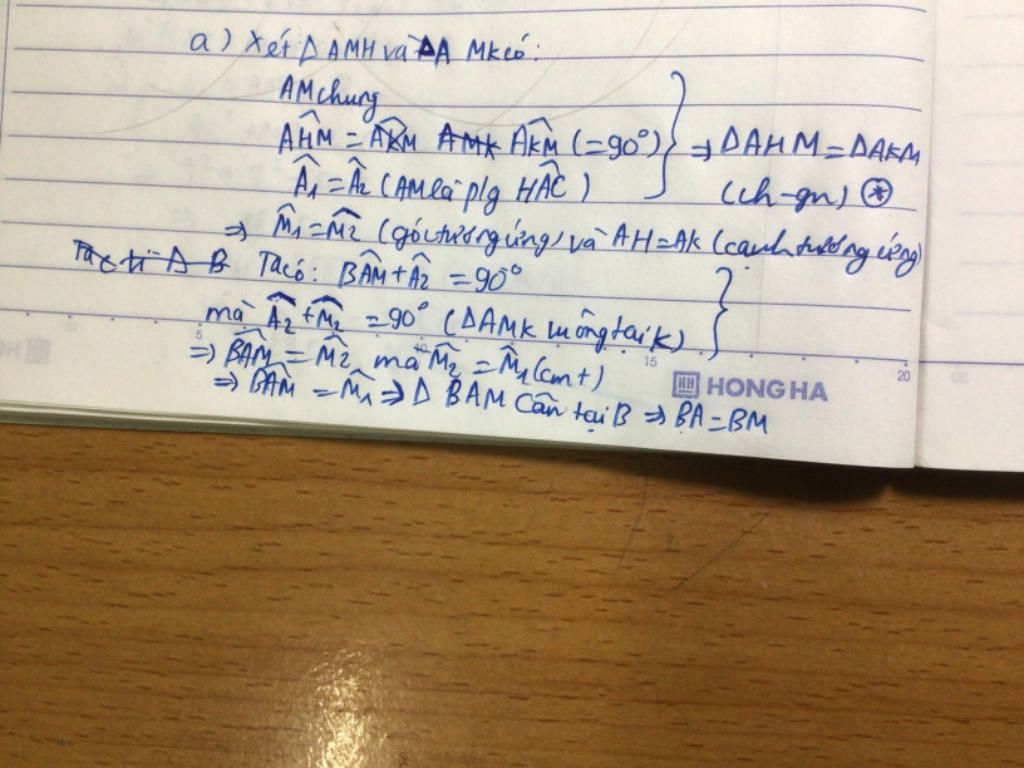 a) Xét Δ AMH và ΔA MK có:
AM chung
AĤM = AK̂M AMK AK̂M (= 90°) ⇒ ΔAHM = ΔAKM
Â1 = Â2 (AM là p/g HÂC) (ch-gn) (*)
⇒ M̂1 = M̂2 (góc tương ứng) và AH = AK (cạnh tương ứng)
Ta có: BÂM + Â2 = 90°
mà Â2 + M̂2 = 90° (ΔAMK vuông tại K)
⇒ BÂM = M̂2 mà M̂2 = M̂1 (cmt)
⇒ BÂM = M̂1 ⇒ Δ BAM cân tại B ⇒ BA = BM
5 10 15 20
HH HONG HA